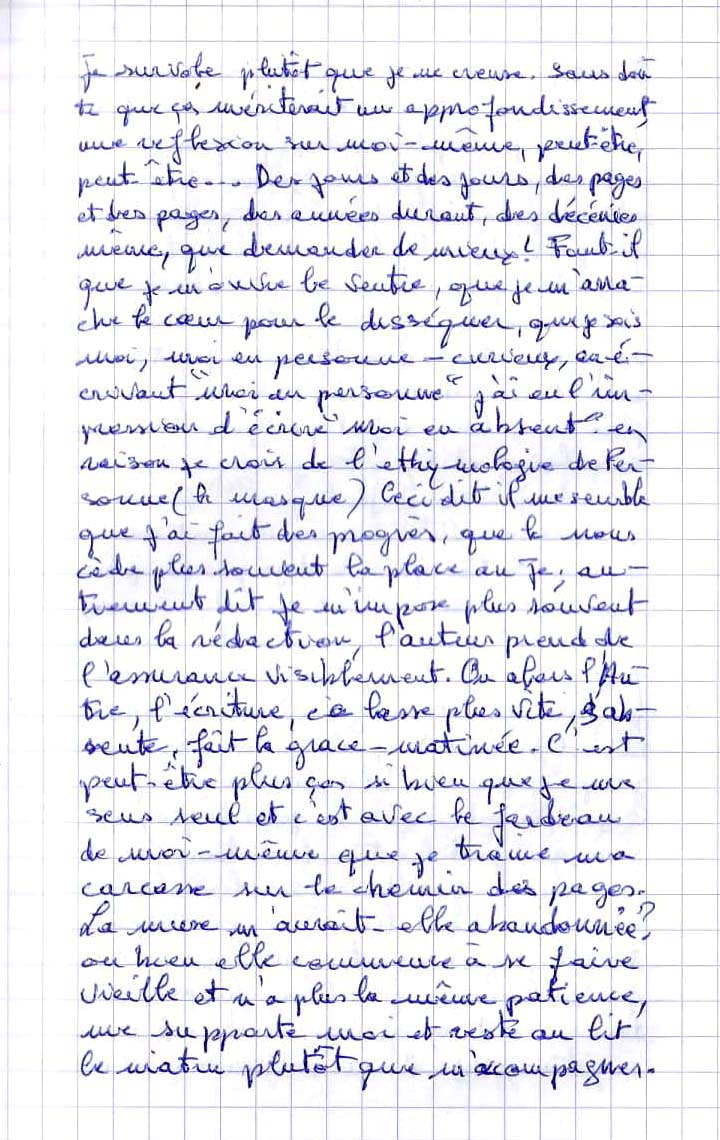 Je survole plutôt que je me creuse. Sans dou
te que ça mériterait un approfondissement,
une reflexion sur moi-même, peut-être,
peut-être... Des jours et des jours, des pages
et des pages, des années durant, des décénies
même, que demander de mieux! Faut-il
que je m'ouvre le ventre, que je m'arra-
che le cœur pour le disséquer, que je sois
moi, moi en personne - curieux, en é-
crivant "moi en personne" j'ai eu l'im-
pression d'écrire "moi en absent" en
raison je crois de l'ethymologie de Per-
sonne (le masque) Ceci dit il me semble
que j'ai fait des progrès, que le nous
cède plus souvent la place au Je, au-
trement dit Je m'impose plus souvent
dans la rédaction, l'auteur prend de
l'assurance visiblement. Ou alors l'Au
tre, l'écriture, se lasse plus vite, s'ab-
sente, fait la grace-matinée. C'est
peut-être plus ça si bien que je me
sens seul et c'est avec le fardeau
de moi-même que je traine ma
carcasse sur le chemin des pages.
La muse m'aurait-elle abandonnée?
ou bien elle commence à se faire
vieille et n'a plus la même patience,
me supporte moi et reste au lit
le matin plutôt que m'accompagner.